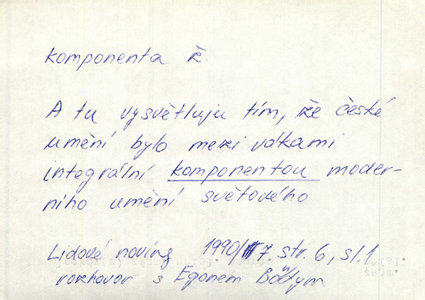 komponenta ž.
A tu vysvětluju tím, že české
umění bylo mezi válkami
integrální komponentou moder-
ního umění světového
Lidové noviny 1990/7. str. 6, sl. 1
rozhovor s Egonem